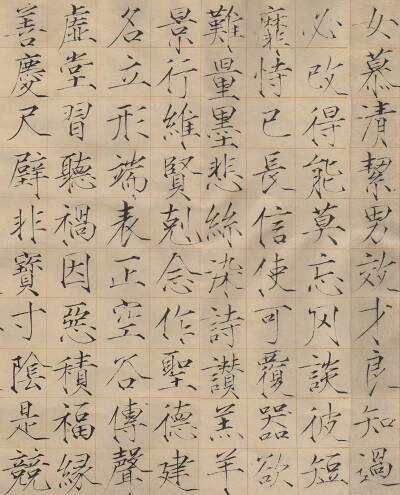 女慕清絜男效才良知過
必改得能莫忘罔談彼短
靡恃己長信使可覆器欲
難量墨悲絲染詩讃羔羊
景行維賢剋念作聖德建
名立形端表正空谷傳聲
虛堂習聽禍因惡積福緣
善慶尺璧非寶寸陰是競